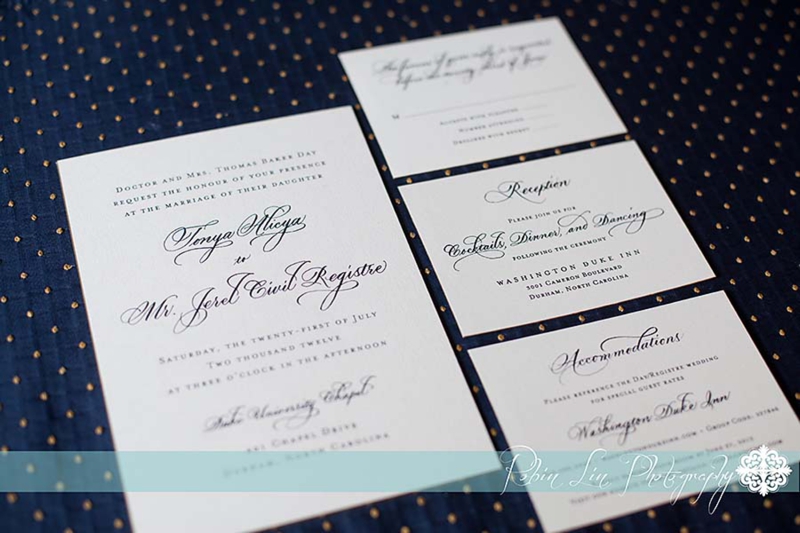 Doctor and Mrs. Thomas Baker Day
request the honour of your presence
at the marriage of their daughter
Tonya Alicya
to
Mr. Jerel Civil Registre
Saturday, the twenty-first of July
Two thousand twelve
at three o'clock in the afternoon
Duke University Chapel
401 Chapel Drive
Durham, North Carolina
The favour of your reply is requested
before the
M
Accepts with pleasure
Number attending
Declines with regret
Reception
Please join us for
Cocktails, Dinner, and Dancing
following the ceremony
Washington Duke Inn
3001 Cameron Boulevard
Durham, North Carolina
Accommodations
Please reference the Day/Registre wedding
for special guest rates
Washington Duke Inn
Group Code:
Robin Lin Photography